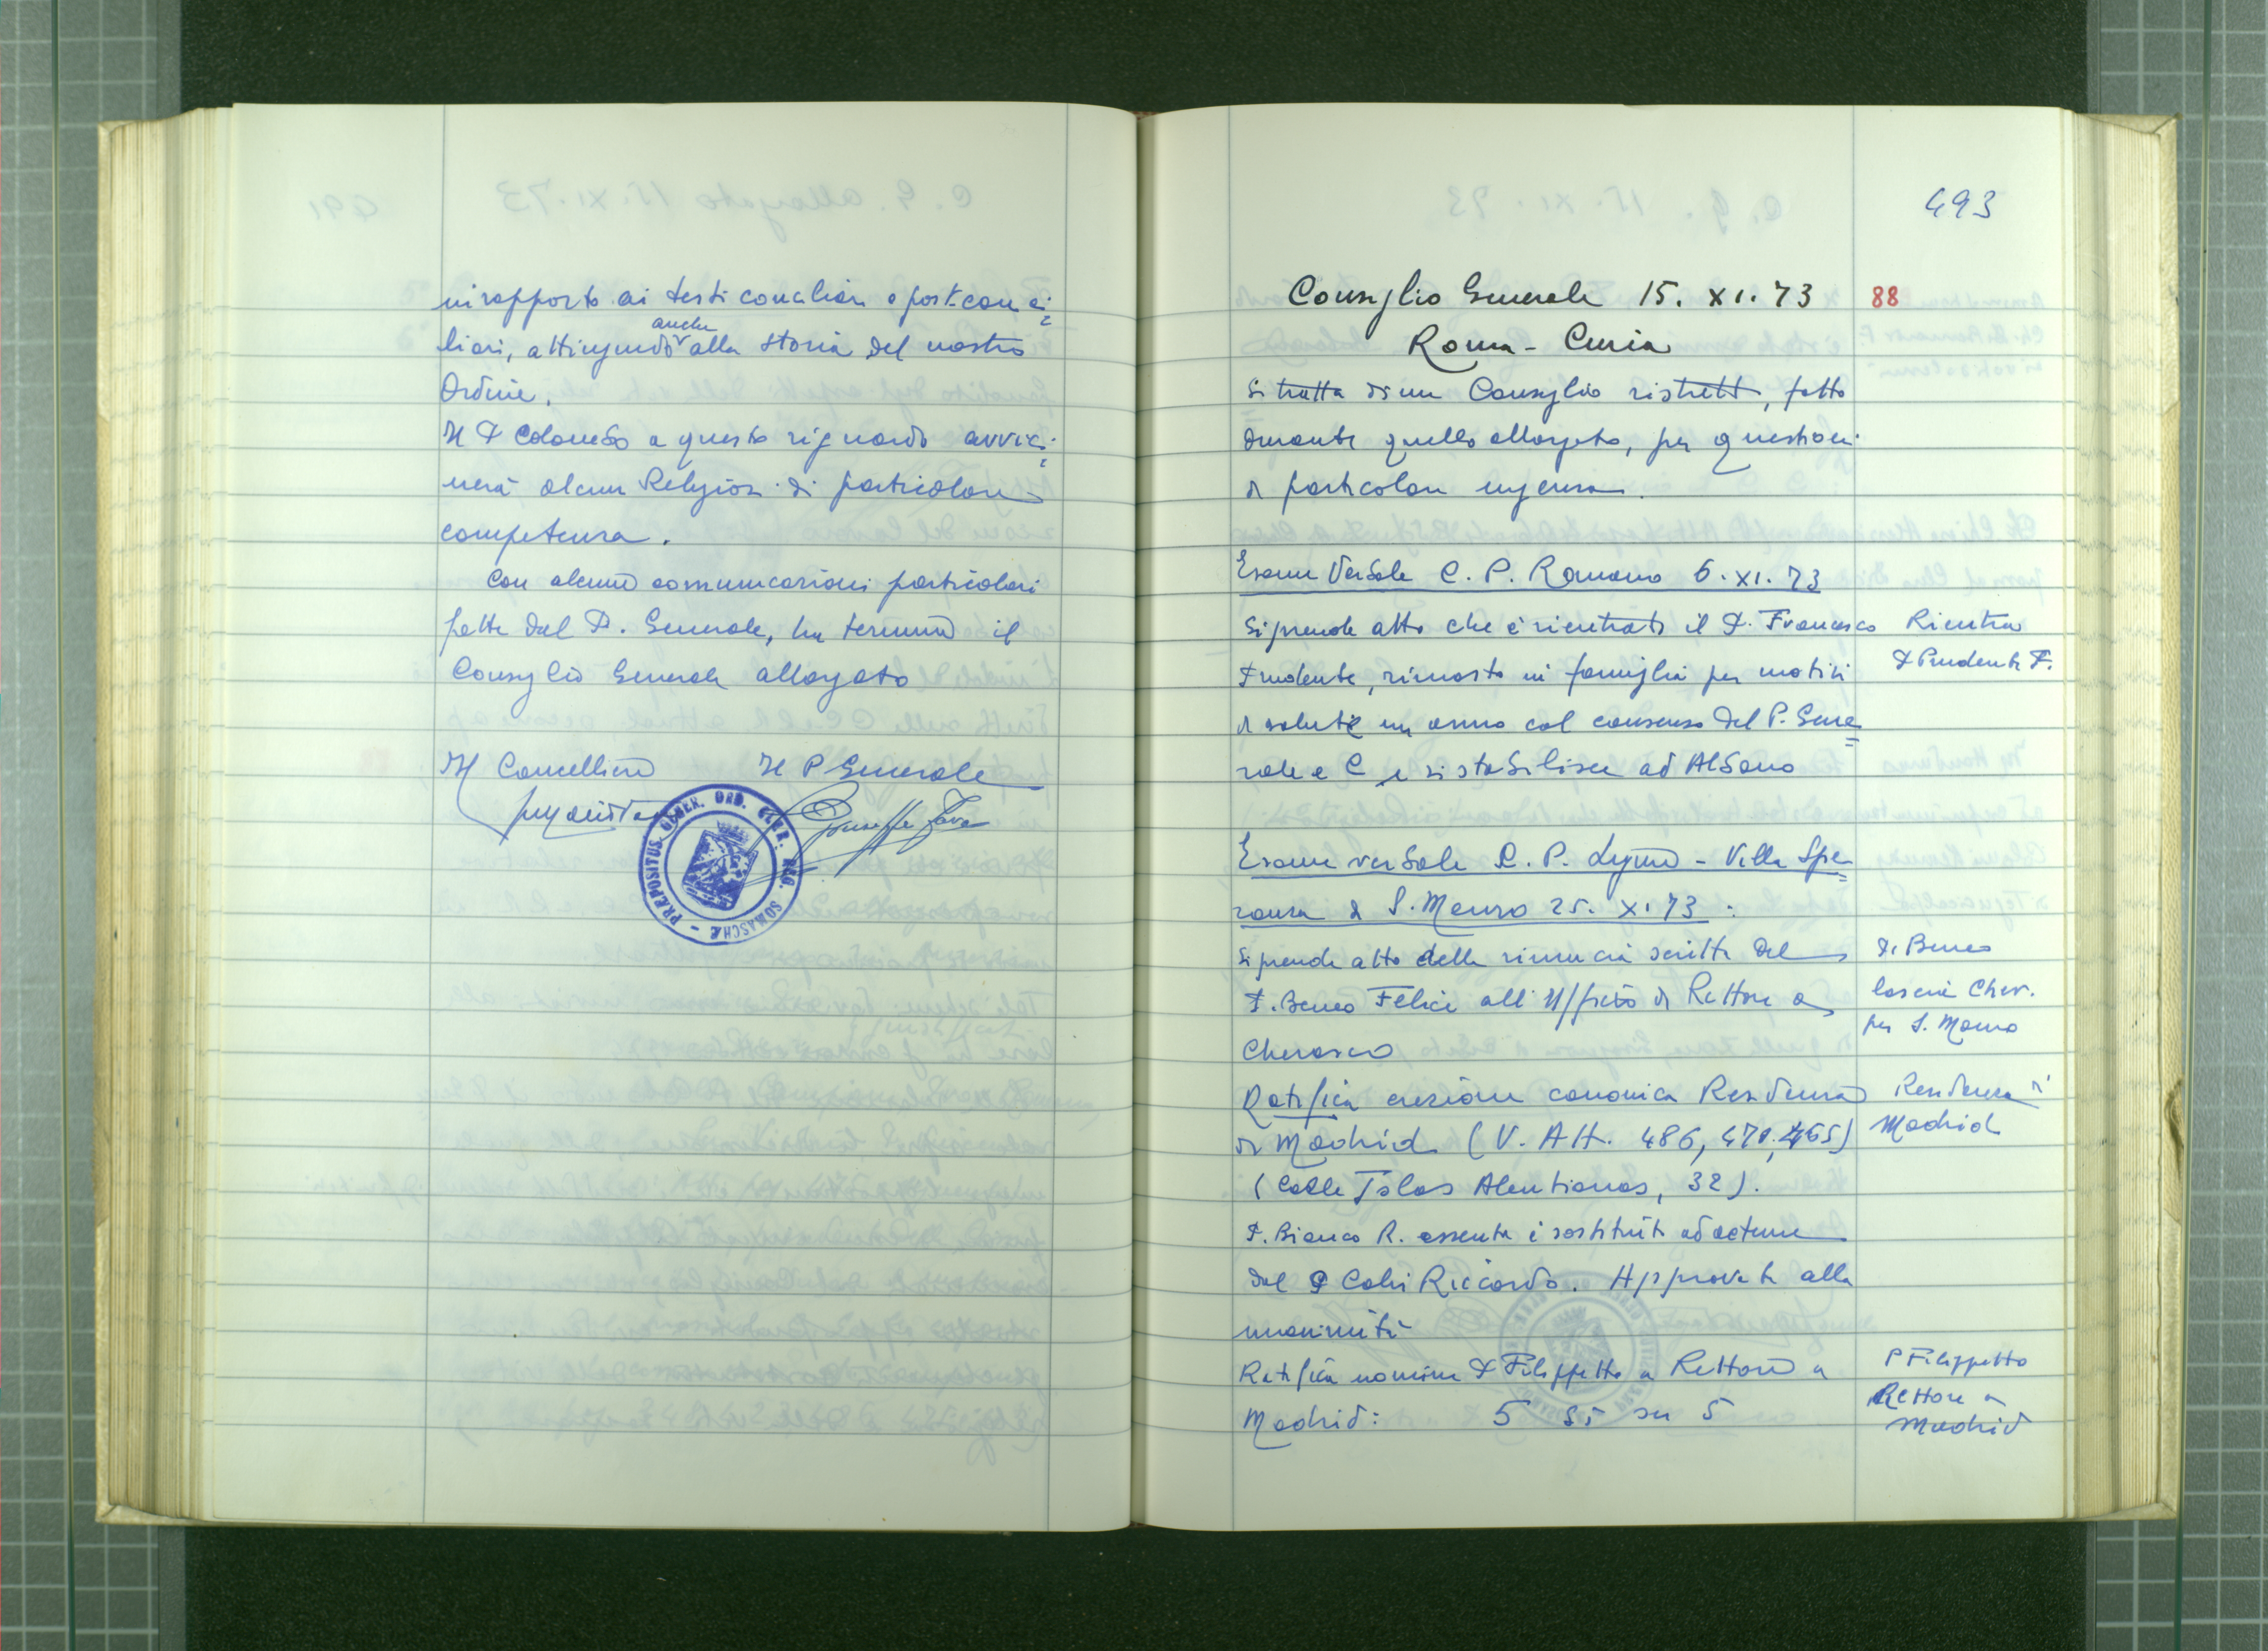 in rapporto ai testi conciliari e post-conci=
liari, attingendo anche alla storia del nostro
Ordine.
Il P Colombo a questo riguardo avvici=
nerà alcuni Religiosi di particolare
competenza.
Con alcune comunicazioni particolari
fatte dal P. Generale, ha termine il
Consiglio Generale allargato
Il Cancelliere Il P Generale
Giuseppe Fava
PRÆPOSITUS GENER. ORD. CLER. REG. SOMASCHÆ
493
Consiglio Generale 15. XI. 73 88
Roma - Curia
Si tratta di un Consiglio ristretto, fatto
durante quello allargato, per questioni
di particolare urgenza.
Esame Verbale C. P. Romano 6. XI. 73
Si prende atto che è rientrato il P. Francesco
Prudente, rimasto in famiglia per motivi
di salute un anno col consenso del P. Gene=
rale e C e si stabilisce ad Albano
Rientra
P Prudente F.
Esame verbale C. P. Ligure - Villa Spe=
ranza di S. Mauro 25. X. 73:
Si prende atto della rinuncia scritta del
P. Beneo Felice all'Ufficio di Rettore a
Cherasco
P. Beneo
lascia Cher.
per S. Mauro
Ratifica erezione canonica Residenza
di Madrid (V. Att. 486, 470, 465)
(Calle Islas Aleutianas, 32).
Residenza di
Madrid
P. Bianco R. assente è sostituito ad actum
dal P Colli Riccardo. Approvata alla
unanimità
Ratifica nomina P Filippetto a Rettore a
Madrid: 5 Sì su 5
P Filippetto
Rettore a
Madrid